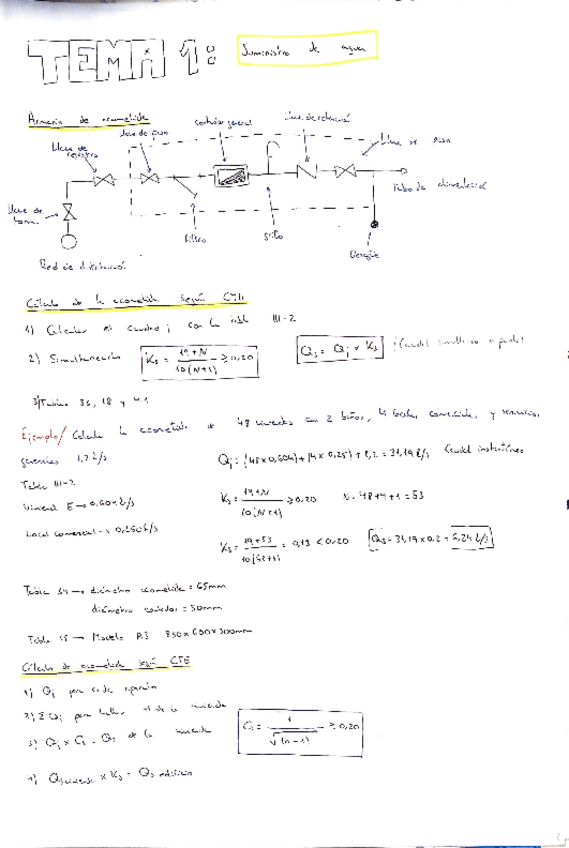 TEMA 1:
Suministro de agua
Armario de acometida
Llave de registro
Llave de paso
Contador general
Llave de retención
Llave de paso
Tubo de alimentación
Llave de toma
Filtro
grifo
Desagüe
Red de distribución
Cálculo de la acometida según
1) Calcular el caudal i con la tabla III-2
2) Simultaneidad Ks = 19+N / 10(N+1) ≥ 0,20
Qs = Qi × Ks
3) Tablas
Ejemplo/ Calcula la acometida de 48 viviendas con 2 baños, 4 locales comerciales, y servicios
generales 1,2 l/s
Qi = (48x0,604)+(4x0,25)+1,2 = 31,19 l/s Caudal instantáneo
Tabla III-2
Vivienda E → 0,604 l/s
Local comercial → 0,250 l/s
Ks = 19+N / 10(N+1) ≥ 0,20 N = 48+4+1 = 53
Ks = 19+53 / 10(53+1) = 0,13 < 0,20
Qs = 31,19 x 0,2 = 6,24 l/s
Tabla → diámetro acometida = 65mm
diámetro contador = 50mm
Tabla → Modelo
Cálculo de acometida según CTE
1) Qi para cada
2) Σ Qi para hallar de la vivienda
3) Qi x Cs = Qs de la vivienda
Cs = 1 / √(n-1) ≥ 0,20
4) Qs vivienda x Ks = Qs edificio